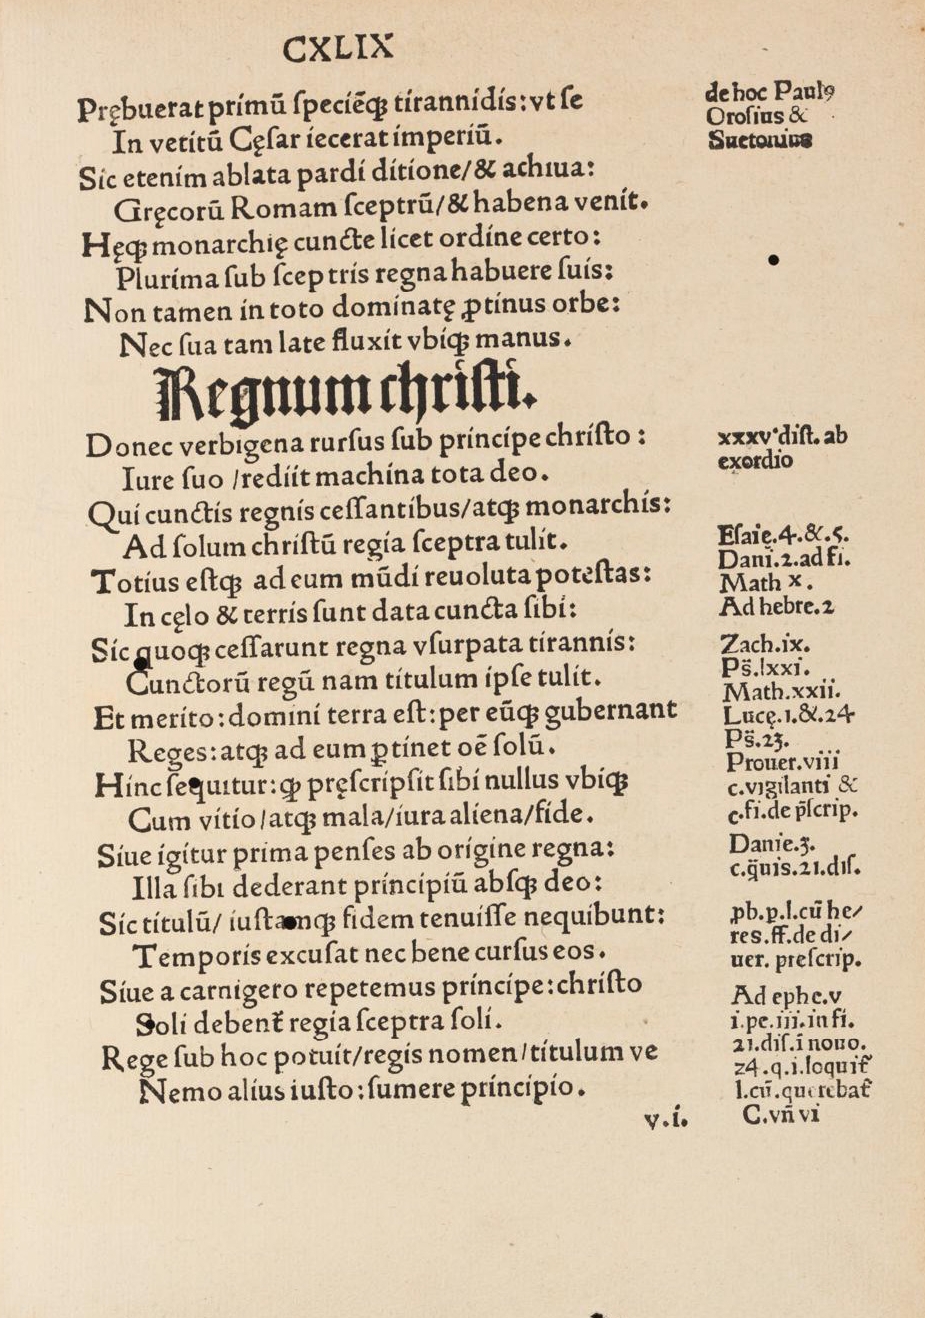 CXLIX
Prębuerat primū ſpeciēq; tirannidis: vt ſe
In vetitū Cęſar iecerat imperiū.
Sic etenim ablata pardi ditione/& achiua:
Gręcorū Romam ſceptrū/& habena venit.
Hęq; monarchię cuncte licet ordine certo:
Plurima ſub ſceptris regna habuere ſuis:
Non tamen in toto dominatę ꝓtinus orbe:
Nec ſua tam late fluxit vbiq; manus.
de hoc Paulꝰ
Oroſius &
Suetonius
Regnum chriſti.
Donec verbigena rurſus ſub principe chriſto:
Iure ſuo /rediit machina tota deo.
Qui cunctis regnis ceſſantibus/atq; monarchis:
Ad ſolum chriſtū regia ſceptra tulit.
Totius eſtq; ad eum mūdi reuoluta poteſtas:
In cęlo & terris ſunt data cuncta ſibi:
Sic quoq; ceſſarunt regna vſurpata tirannis:
Cunctorū regū nam titulum ipſe tulit.
Et merito: domini terra eſt: per eūq; gubernant
Reges: atq; ad eum ꝑtinet oē ſolū.
Hinc ſequitur: ꝙ pręſcripſit ſibi nullus vbiq;
Cum vitio/atq; mala/iura aliena/fide.
Siue igitur prima penſes ab origine regna:
Illa ſibi dederant principiū abſq; deo:
Sic titulū/ iuſtamq; fidem tenuiſſe nequibunt:
Temporis excuſat nec bene curſus eos.
Siue a carnigero repetemus principe: chriſto
Soli debent᷑ regia ſceptra ſoli.
Rege ſub hoc potuit/regis nomen/titulum ve
Nemo alius iuſto: ſumere principio.
xxxv.diſt. ab
exordio
Eſaię.4.&.5.
Dani.2.ad fi.
Math x.
Ad hebre.2
Zach.ix.
Ps̄.lxxi.
Math.xxii.
Lucę.1.&.24
Ps̄.23.
Prouer.viii
c.vigilanti &
c.fi.de p̄ſcrip.
Danie.3.
c.q̄uis.21.diſ.
ꝓb.ꝑ.l.cū he/
res.ff.de di/
uer. preſcrip.
Ad ephe.v
i.pe.iii.in fi.
21.diſ.ī nouo.
24.q.i.loquit᷑
l.cū.querebat᷑
C.vn̄ vi
v.i.